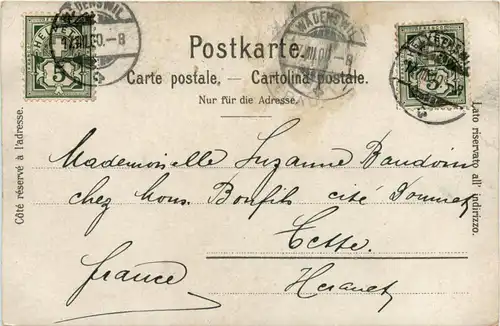 WÄDENSWIL
HELVETIA
5
Postkarte.
Carte postale. — Cartolina postale.
Nur für die Adresse.
Côté réservé à l'adresse.
Lato riservato all' indirizzo.
Mademoiselle Suzanne Baudoin
chez Mons Bonfils cité Doumet
Cette.
france
Heraut